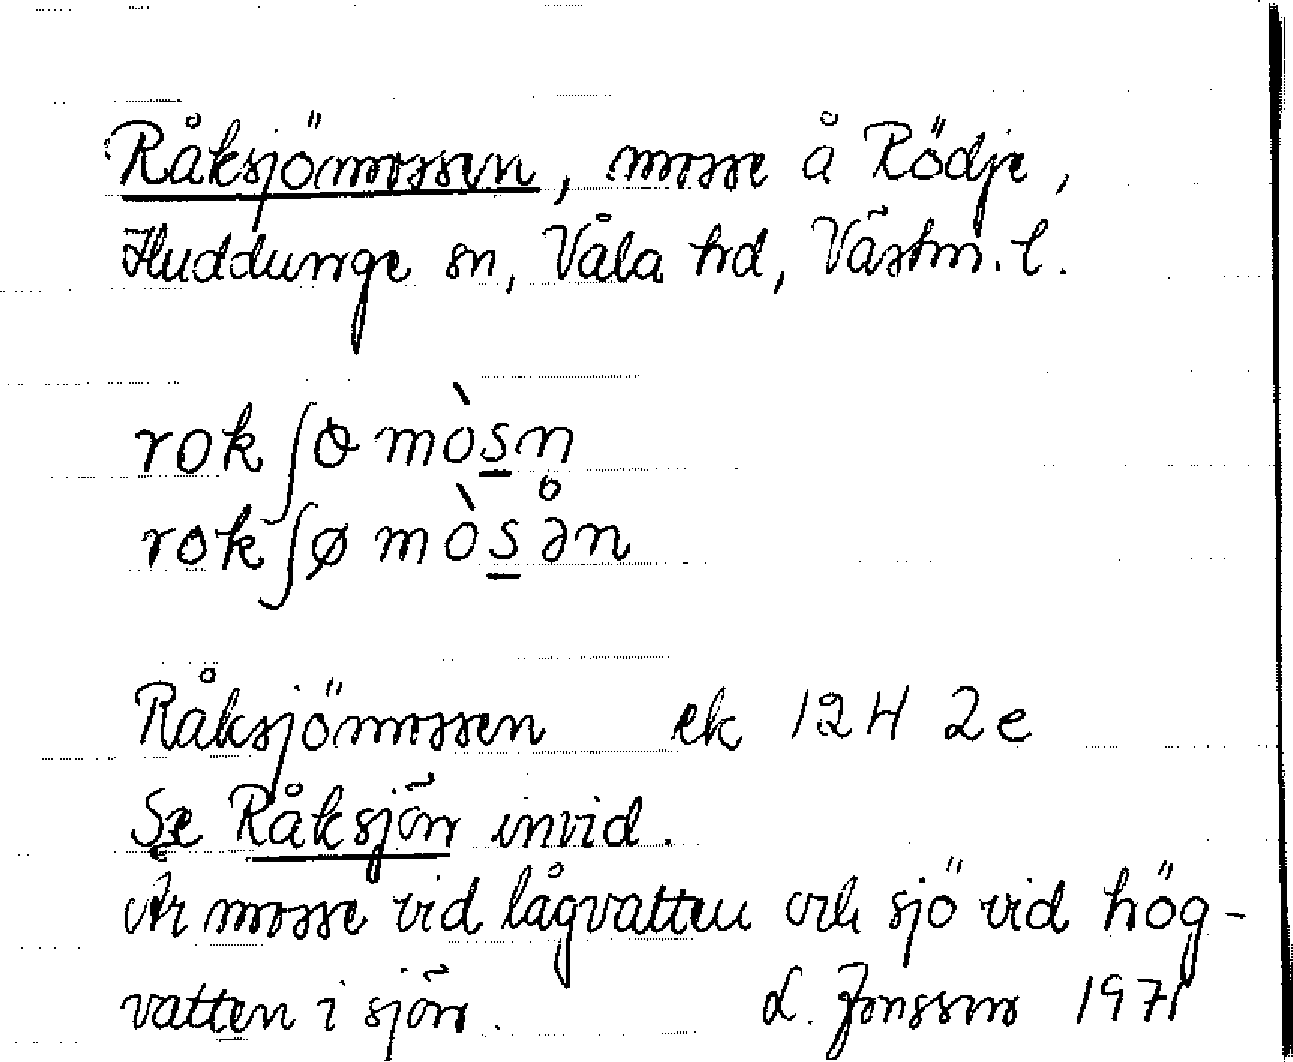 Råksjömossen, mosse å Rödje,
Huddunge sn, Våla hd, Västm. l.
rokʃømòs̲n
rokʃømòs̲ə̊n
Råksjömossen ek 12H 2e
Se Råksjön invid.
Är mosse vid lågvatten och sjö vid hög-
vatten i sjön. L. Jonsson 1971